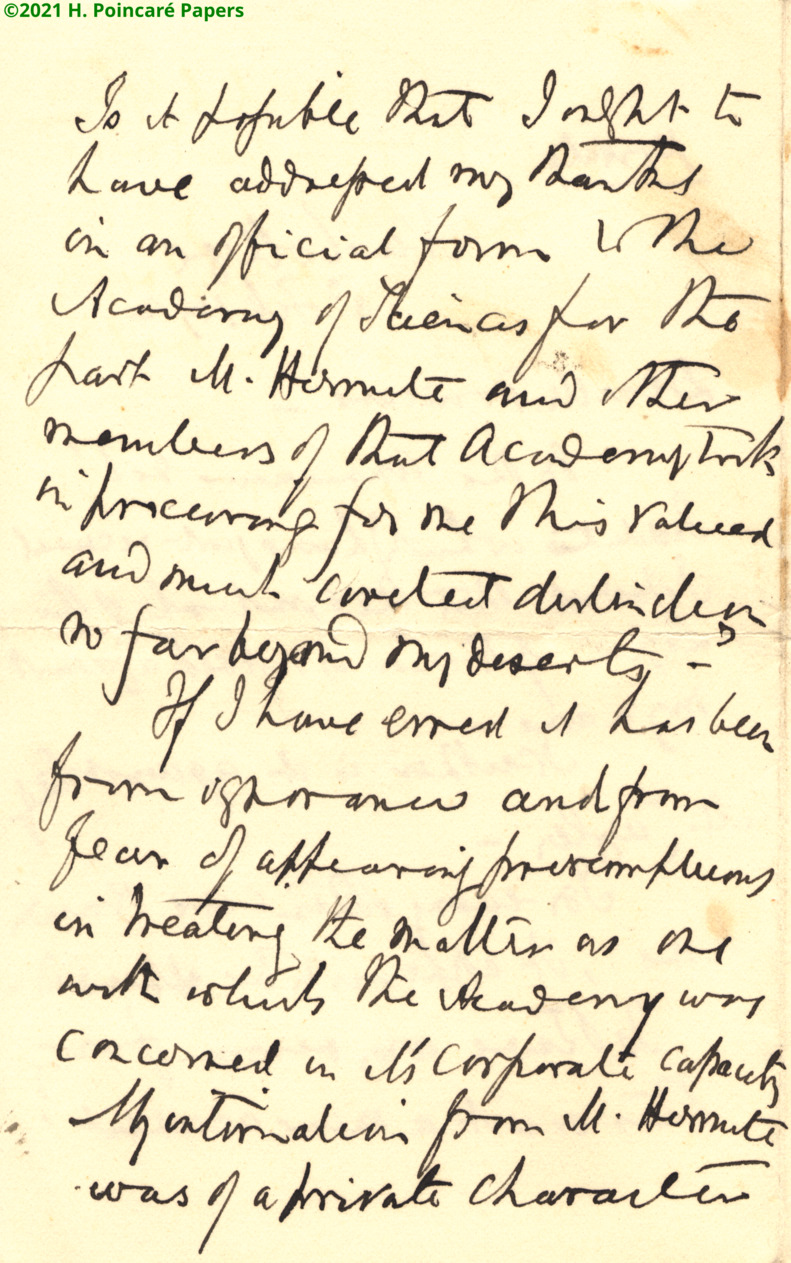 ©2021 H. Poincaré Papers
Is it possible that I ought to
have addressed my thanks
in an official form to the
Academy of Sciences for the
part M. Hermite and other
members of that Academy took
in procuring for me this valued
and much coveted distinction
so far beyond my deserts –
If I have erred it has been
from ignorance and from
fear of appearing presumptuous
in treating the matter as one
with which the Academy was
concerned in it's corporate capacity
My intimation from M. Hermite
was of a private character